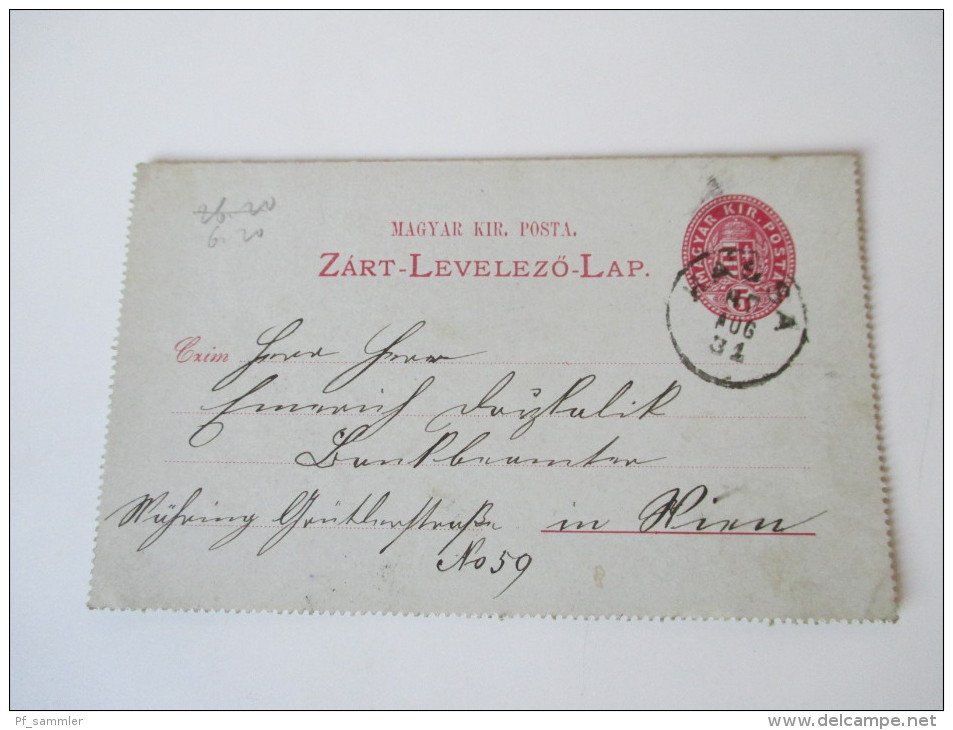 26.20
6.20
MAGYAR KIR. POSTA.
ZÁRT-LEVELEZŐ-LAP.
MAGYAR KIR. POSTA
5
AUG
31
Czim Herr Herr
Emerich
Bankbeamter
Währing in Wien
No 59
Pf_sammler
www.delcampe.net